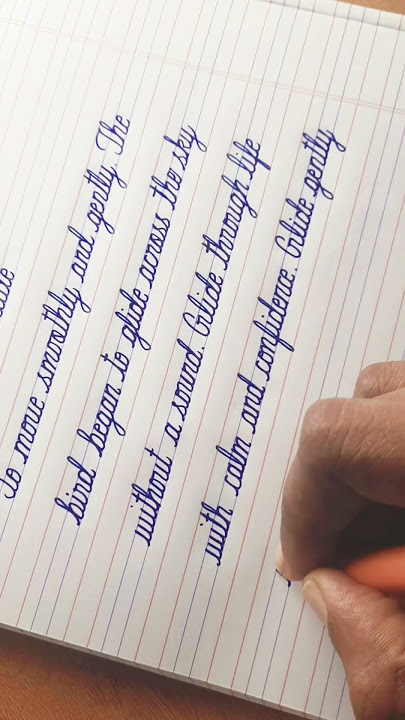 to move smoothly and gently. The
bird began to glide across the sky
without a sound. Glide through life
with calm and confidence. Glide gently